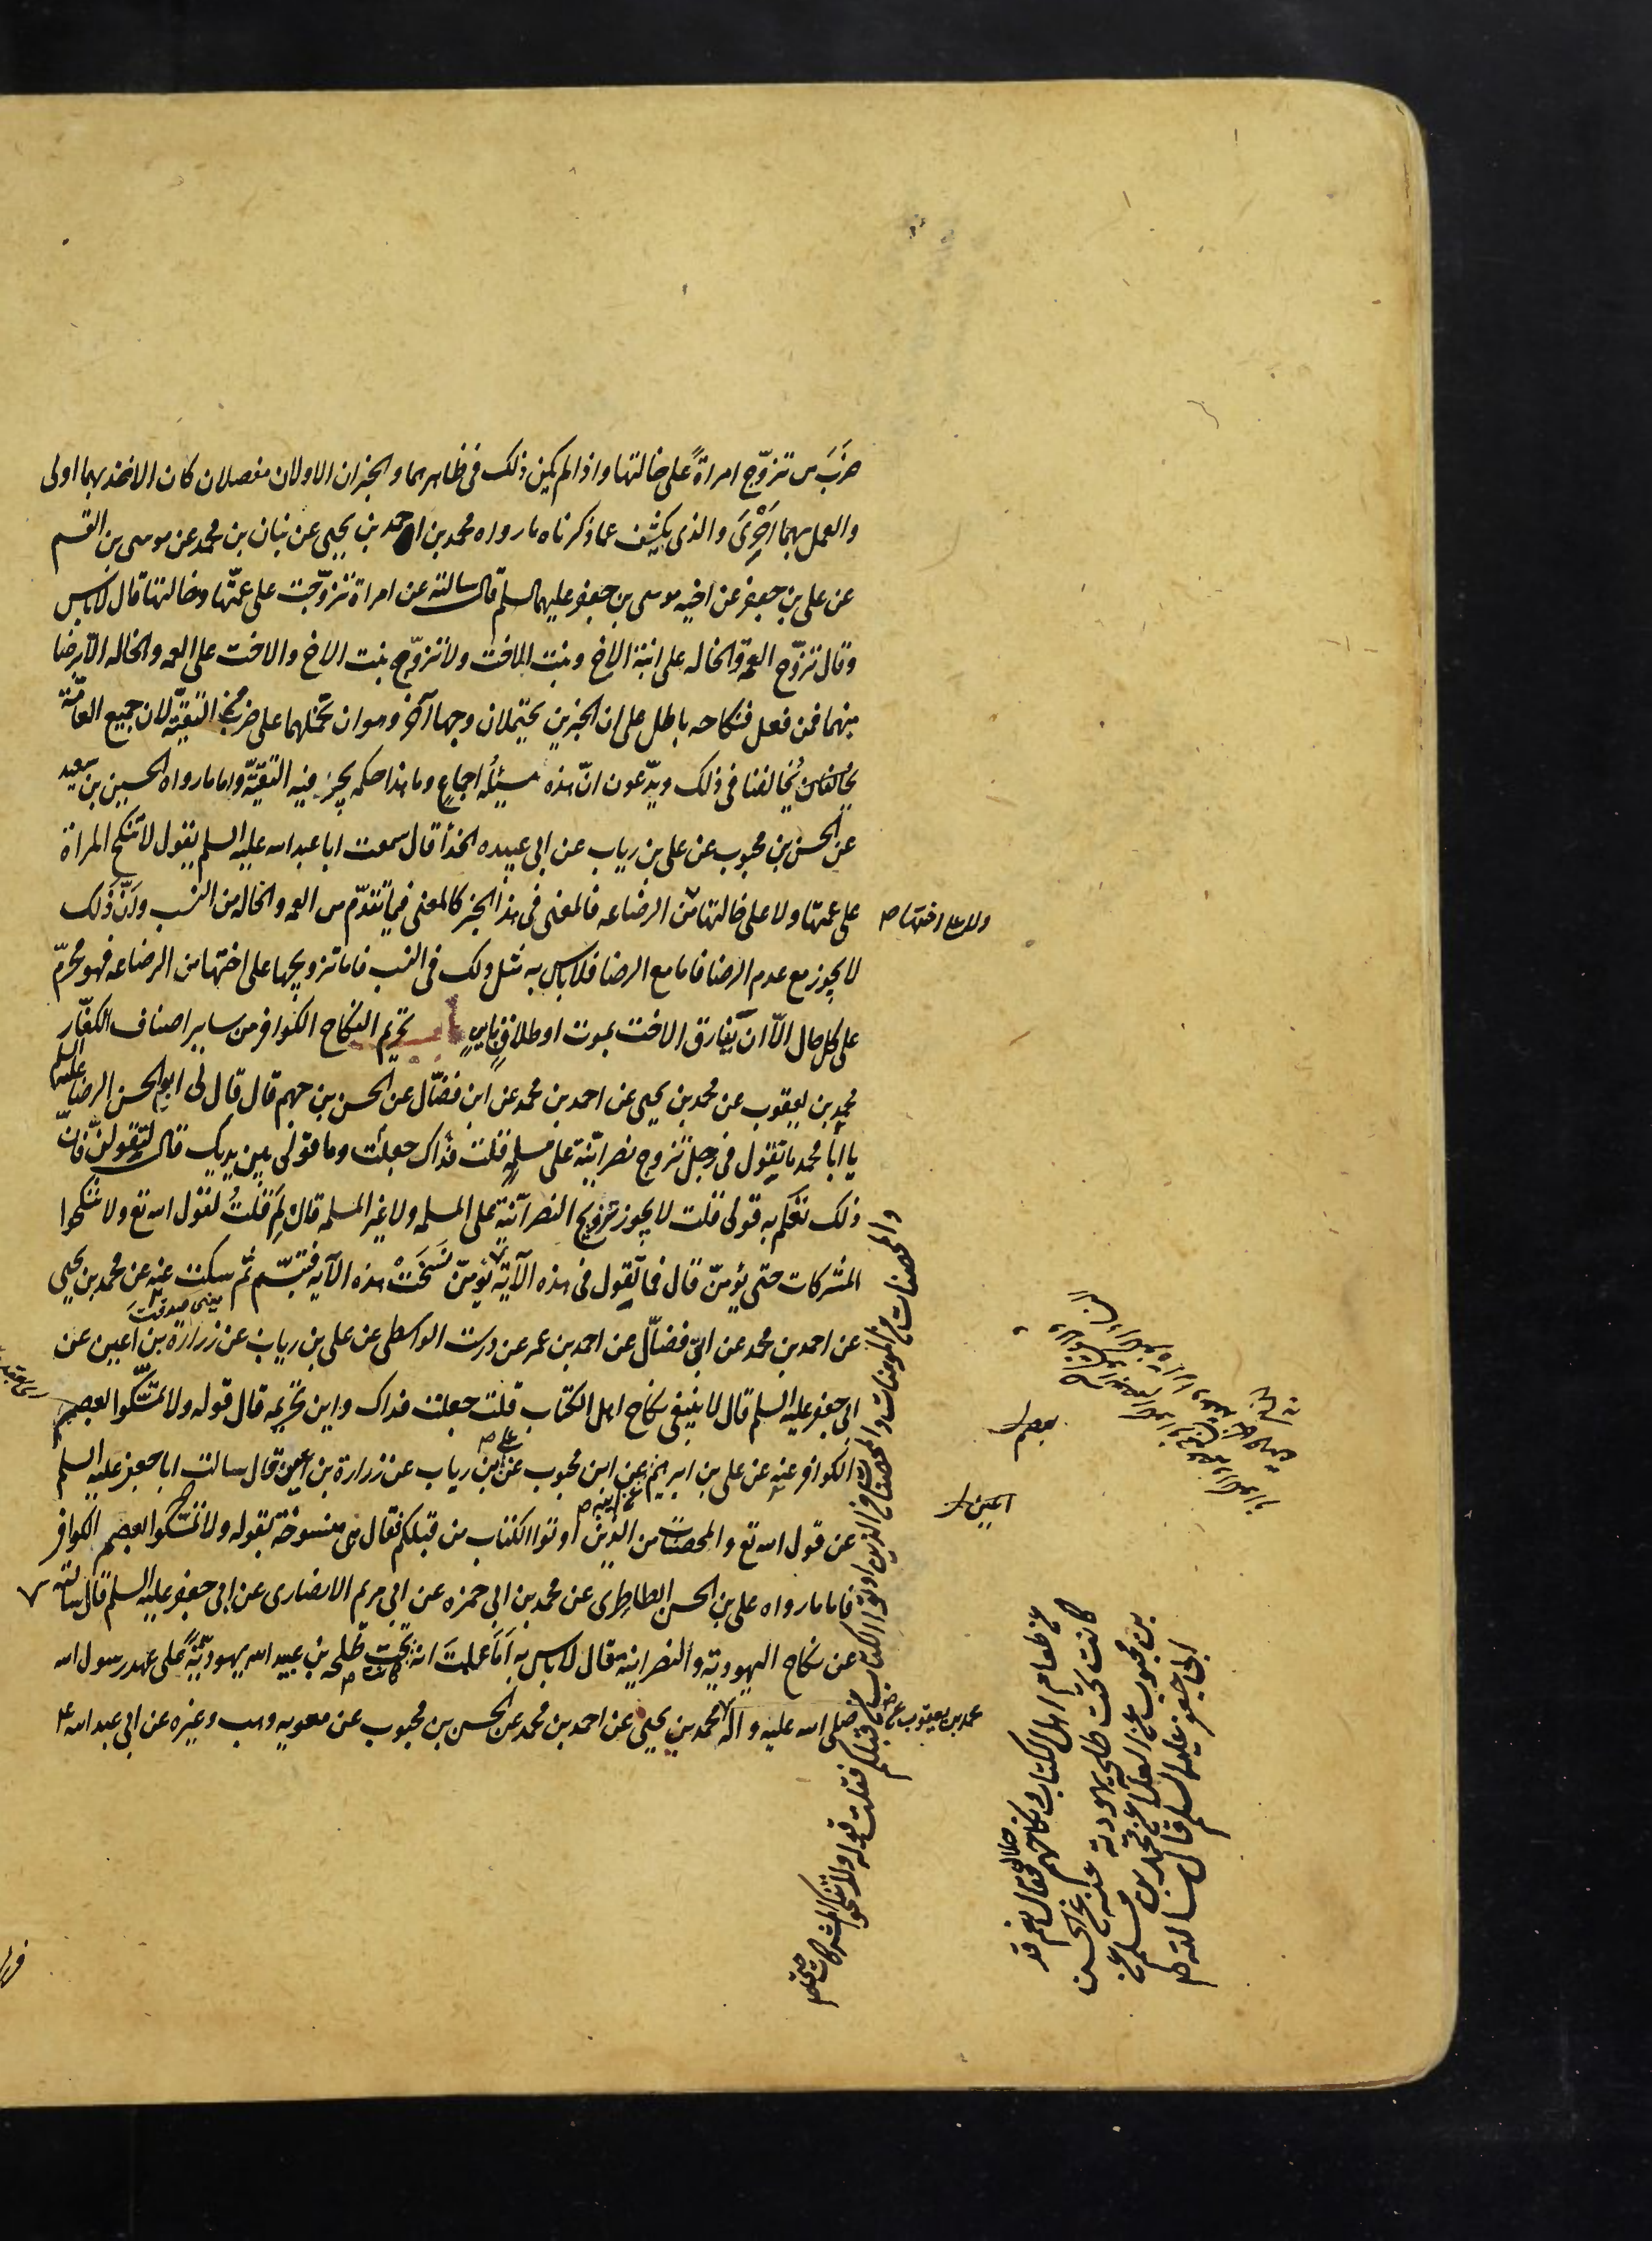 ضرب من تزوّج امراةً على خالتها واذا لم يكن ذلك فى ظاهرهما والخبران الاولان مفصلان كان الاخذ بهما اولى
والعمل بهما احرى والذى يكشف عما ذكرناه ما رواه محمد بن احمد بن يحيى عن بنان بن محمد عن موسى بن القسم
عن على بن جعفر عن اخيه موسى بن جعفر عليهما السلم قال سالته عن امراة تزوّجت على عمّتها وخالتها قال لا باس
وقال تزوّج العمة والخاله على ابنة الاخ وبنت الاخت ولا تزوّج بنت الاخ والاخت على العمه والخاله الّا برضا
منهما فمن فعل فنكاحه باطل على ان الخبرين يحتملان وجها آخر وهو ان نحملهما على ضرب من التقيّة لان جميع العامّة
يخالفنا فى ذلك ويدّعون انّ هذه مسئلة اجماع وما هذا حكمه يجرى فيه التقيّة واما ما رواه الحسين بن سعيد
عن الحسن بن محبوب عن على بن رياب عن ابى عبيده الحذا قال سمعت ابا عبد الله عليه السلم يقول لا تنكح المراة
على عمتها ولا على خالتها من الرضاعه فالمعنى فى هذا الخبر كالمعنى فيما تقدّم من العمه والخاله من النسب وانّ ذلك
ولا على اختها ص
لا يجوز مع عدم الرضا فاما مع الرضا فلا باس به مثل ذلك فى النسب فاما تزويجها على اختها من الرضاعه فهو محرّم
على كل حال الّا ان يفارق الاخت بموت او طلاق باين باب تحريم النكاح الكوافر من ساير اصناف الكفّار
محمد بن يعقوب عن محمد بن يحيى عن احمد بن محمد عن ابن فضّال عن الحسن بن جهم قال قال لى ابو الحسن الرضا عليه السلم
يا ابا محمد ما تقول فى رجل تزوج نصرانيّة على مسلمة قلت فداك جعلت وما قولى بين يديك قال لتقولنّ فانّ
ذلك تعلم به قولى قلت لا يجوز تزويج النصرانية على المسلمه ولا غير المسلمه قال لم قلت لقول الله تع ولا تنكحوا
المشركات حتى يؤمنّ قال فما تقول فى هذه الآية قلت نسخت هذه الآيه فتبسّم ثم سكت عنه عن محمد بن يحيى
عن احمد بن محمد عن ابن فضّال عن احمد بن عمر عن درست الواسطى عن على بن رياب عن زرارة بن اعين عن
ابى جعفر عليه السلم قال لا ينبغى نكاح اهل الكتاب قلت جعلت فداك واين تحريمه قال قوله ولا تمسّكوا بعصم
الكوافر عنه عن على بن ابرهيم عن ابن محبوب عن على بن رياب عن زرارة بن اعين قال سالت ابا جعفر عليه السلم
بعصم
عن قول الله تع والمحصنات من الذين اوتوا الكتاب من قبلكم فقال هى منسوخة بقوله ولا تمسّكوا بعصم الكوافر
اعين
فاما ما رواه على بن الحسن الطاطرى عن محمد بن ابى حمزه عن ابى مريم الانصارى عن ابى جعفر عليه السلم قال سالته
عن نكاح اليهودية والنصرانية فقال لا باس به اما علمت انه كانت تحت طلحه بن عبيد الله يهوديّةً على عهد رسول الله
صلى الله عليه وآله محمد بن يحيى عن احمد بن محمد عن الحسن بن محبوب عن معويه وهب وغيره عن ابى عبد الله ع
محمد بن يعقوب عن
والمحصنات من المؤمنات والمحصنات من الذين اوتوا الكتاب من قبلكم فقلت قوله ولا تنكحوا المشركات حتى
عن طعام اهل الكتاب ونكاحهم حلال فقال نعم قد
كانت تحت طلحه يهودية عنه عن الحسن
بن محبوب عن العلا عن محمد بن مسلم عن
ابى جعفر عليه السلم قال سالته